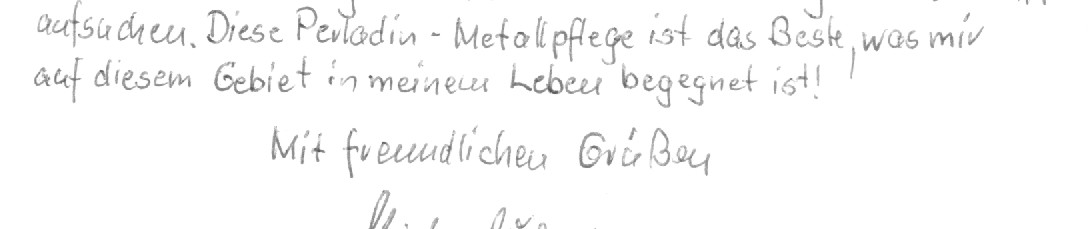 aufsuchen. Diese Perladin - Metallpflege ist das Beste, was mir
auf diesem Gebiet in meinem Leben begegnet ist!
Mit freundlichen Grüßen